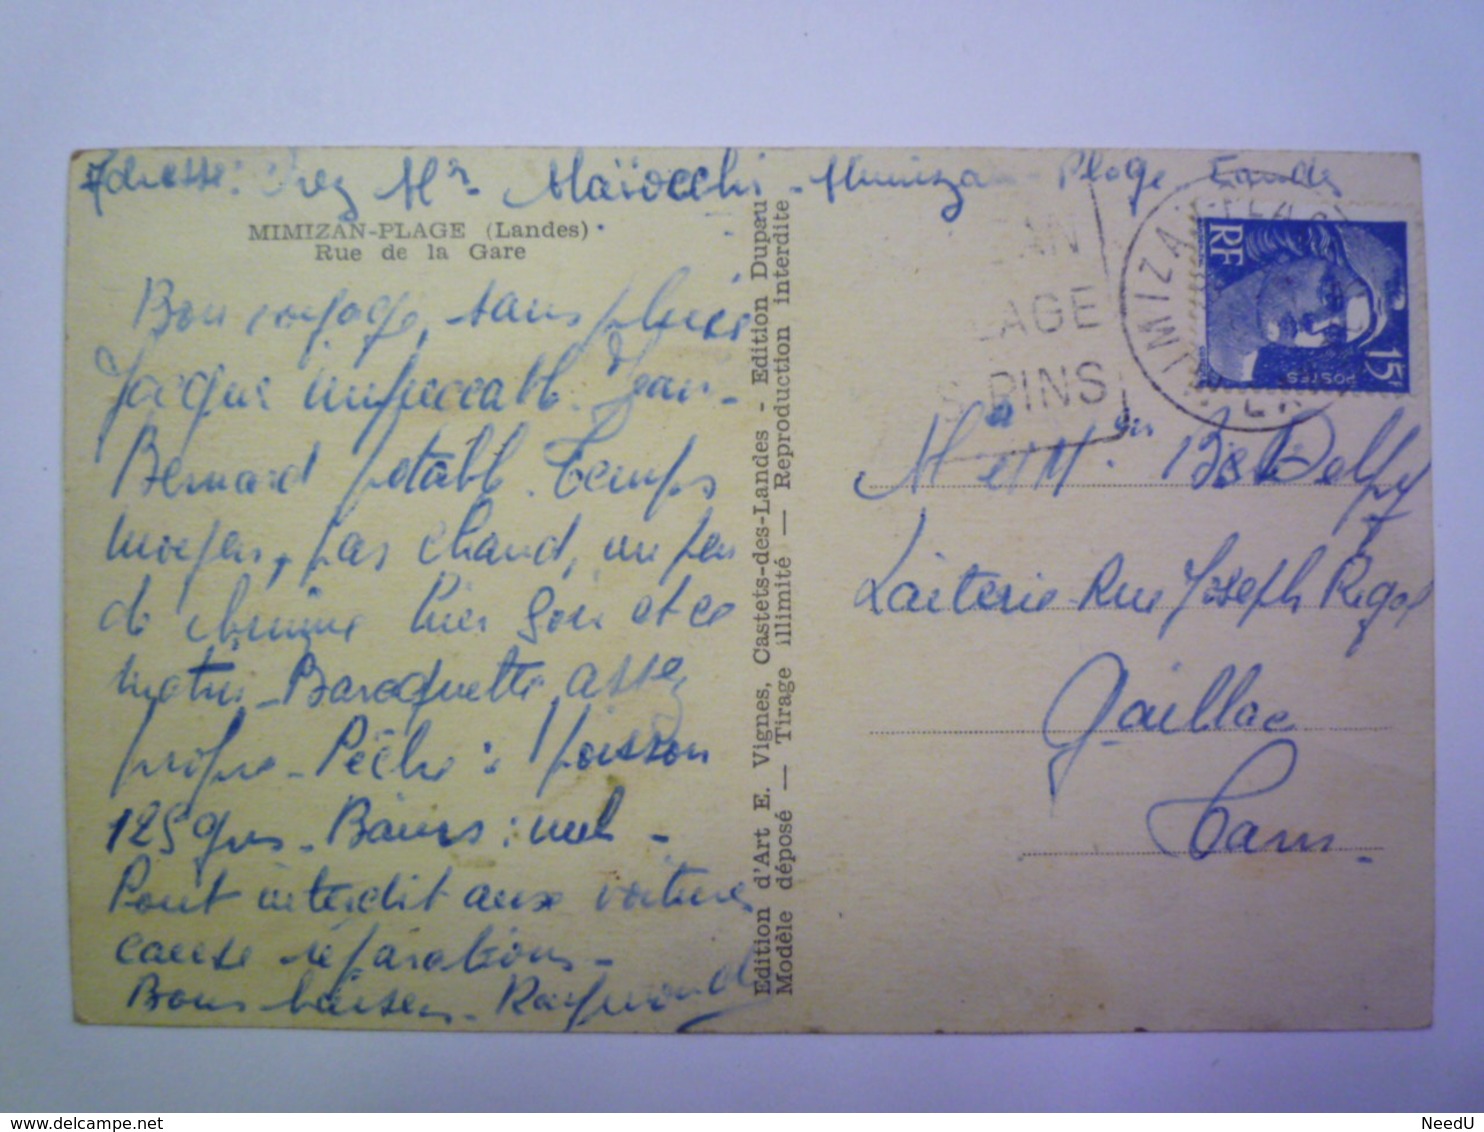 Adresse: Chez Mr. Maïocchi - Mimizan - Plage Landes
MIMIZAN-PLAGE (Landes)
Rue de la Gare
Bon voyage, sans pluie
Jacques impeccable. Jean-
Bernard potable. Temps
moyen, pas chaud, un peu
de bruine hier soir et ce
matin - Baraquette assez
propre - Pêche : 1 poisson
125 grs - Bains : nul -
Pont interdit aux voitures
cause réparations -
Bons baisers - Raymond
Edition d'Art E. Vignes, Castets-des-Landes - Edition Dupau
Modèle déposé — Tirage illimité — Reproduction interdite
AN
LAGE
S PINS
MIMIZAN-PLAGE
RF
15F
POSTES
M et Me Delpy
Laiterie Rue Joseph Rigal
Gaillac
Tarn -
NeedU